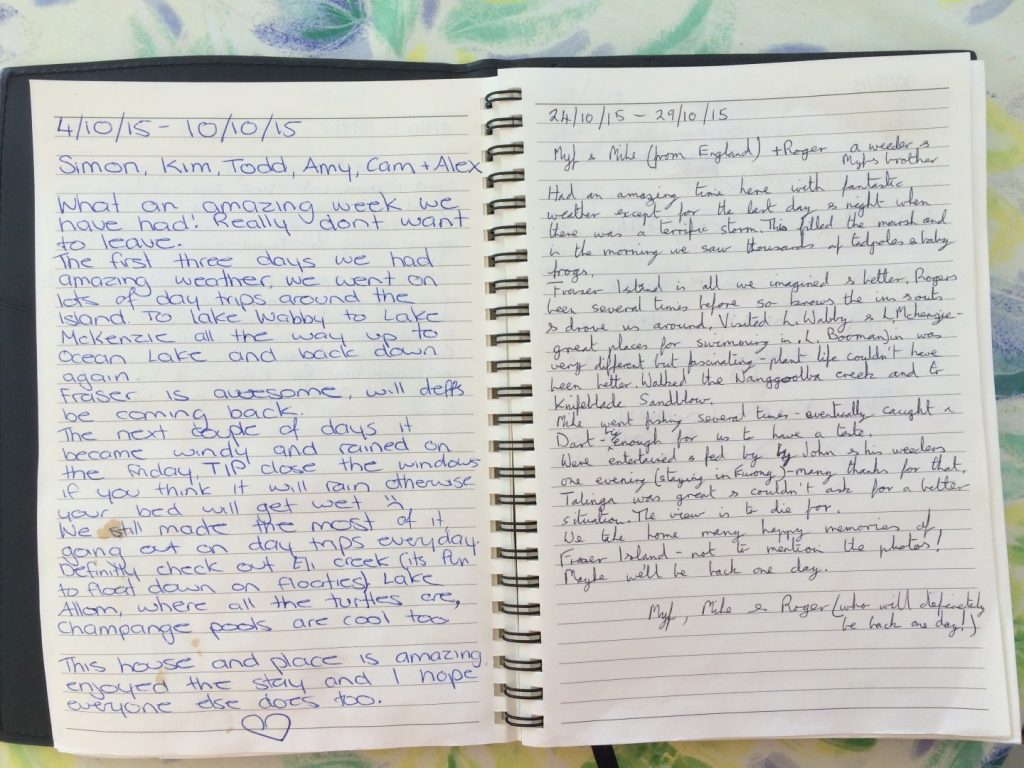 4/10/15 - 10/10/15
Simon, Kim, Todd, Amy, Cam + Alex
What an amazing week we
have had! Really dont want
to leave.
The first three days we had
amazing weather, we went on
lots of day trips around the
Island. To lake Wabby to Lake
McKenzie all the way up to
Ocean Lake and back down
again.
Fraser is awesome, will deffs
be coming back.
The next couple of days it
became windy and rained on
the Friday, TIP close the windows
if you think it will rain otherwise
your bed will get wet
We still made the most of it,
going out on day trips everyday.
Definitly check out Eli creek (its fun
to float down on floaties) Lake
Allom, where all the turtles are,
Champange pools are cool too.
This house and place is amazing,
enjoyed the stay and I hope
everyone else does too.
24/10/15 - 29/10/15
Myf & Mike (from England) + Roger a weeder &
Myfs brother
Had an amazing time here with fantastic
weather except for the last day & night when
there was a terrific storm. This filled the marsh and
in the morning we saw thousands of tadpoles & baby
frogs.
Fraser Island is all we imagined & better. Rogers
been several times before so knows the ins & outs
& drove us around. Visited L. Wabby & L. Mckenzie -
great places for swimming in. L. Boomanjin was
very different but fascinating - plant life couldn't have
been better. Walked the Wanggoolba creek and to
Knifeblade Sandblow.
Mike went fishing several times - eventually caught a
Dart - big enough for us to have a taste.
Were entertained & fed by John & his weeders
one evening (staying in Eurong) - many thanks for that.
Talinga was great & couldn't ask for a better
situation. The view is to die for.
We take home many happy memories of
Fraser Island - not to mention the photos!
Maybe we'll be back one day.
Myf, Mike & Roger (who will definetely
be back one day!)